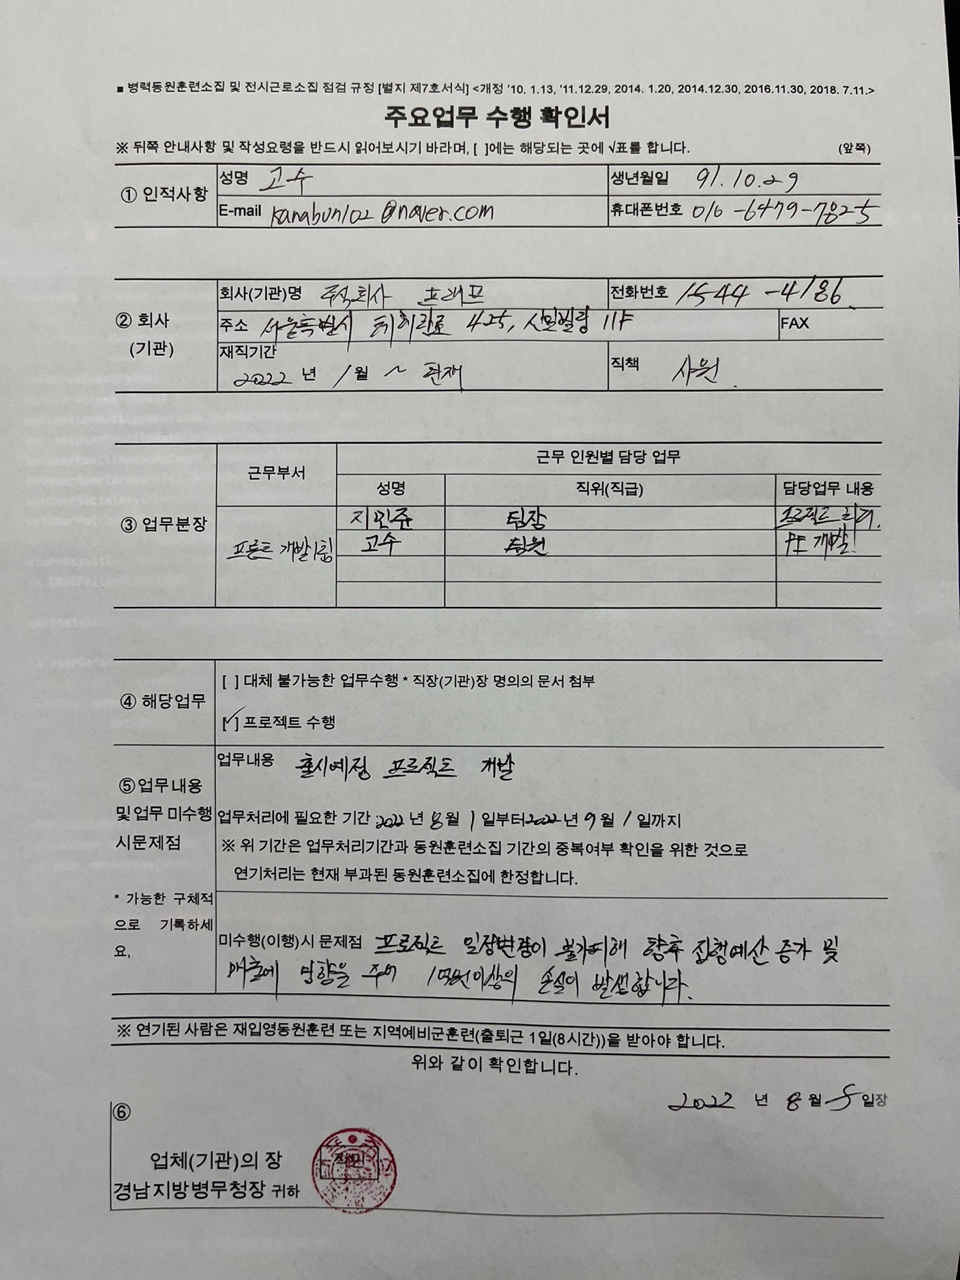 ■ 병력동원훈련소집 및 전시근로소집 점검 규정 [별지 제7호서식] <개정 '10. 1.13, '11.12.29, 2014. 1.20, 2014.12.30, 2016.11.30, 2018. 7.11.>
주요업무 수행 확인서
※ 뒤쪽 안내사항 및 작성요령을 반드시 읽어보시기 바라며, [ ]에는 해당되는 곳에 √표를 합니다. (앞쪽)
① 인적사항
성명 고수 생년월일 91.10.29
E-mail kanabun102@naver.com 휴대폰번호 010-6479-7825
② 회사
(기관)
회사(기관)명 주식회사 프래프 전화번호 1544-4186
주소 서울특별시 테헤란로 425, 신일빌딩 11F FAX
재직기간
2022 년 1월 ~ 현재 직책 사원.
③ 업무분장
근무부서 근무 인원별 담당 업무
성명 직위(직급) 담당업무 내용
프론트 개발1팀
지민규 팀장 프로젝트
고수 팀원 FE 개발
④ 해당업무
[ ] 대체 불가능한 업무수행 * 직장(기관)장 명의의 문서 첨부
[√] 프로젝트 수행
⑤ 업무내용
및 업무 미수행
시문제점
* 가능한 구체적
으로 기록하세
요,
업무내용 출시예정 프로젝트 개발
업무처리에 필요한 기간 : 2022 년 8 월 1 일부터 2022 년 9 월 1 일까지
※ 위 기간은 업무처리기간과 동원훈련소집 기간의 중복여부 확인을 위한 것으로
연기처리는 현재 부과된 동원훈련소집에 한정합니다.
미수행(이행)시 문제점 프로젝트 일정변경이 불가피해 향후 집행예산 증가 및
매출에 영향을 주어 1억원이상의 손실이 발생합니다.
※ 연기된 사람은 재입영동원훈련 또는 지역예비군훈련(출퇴근 1일(8시간))을 받아야 합니다.
위와 같이 확인합니다.
2022 년 8 월 5 일장
⑥
업체(기관)의 장
경남지방병무청장 귀하